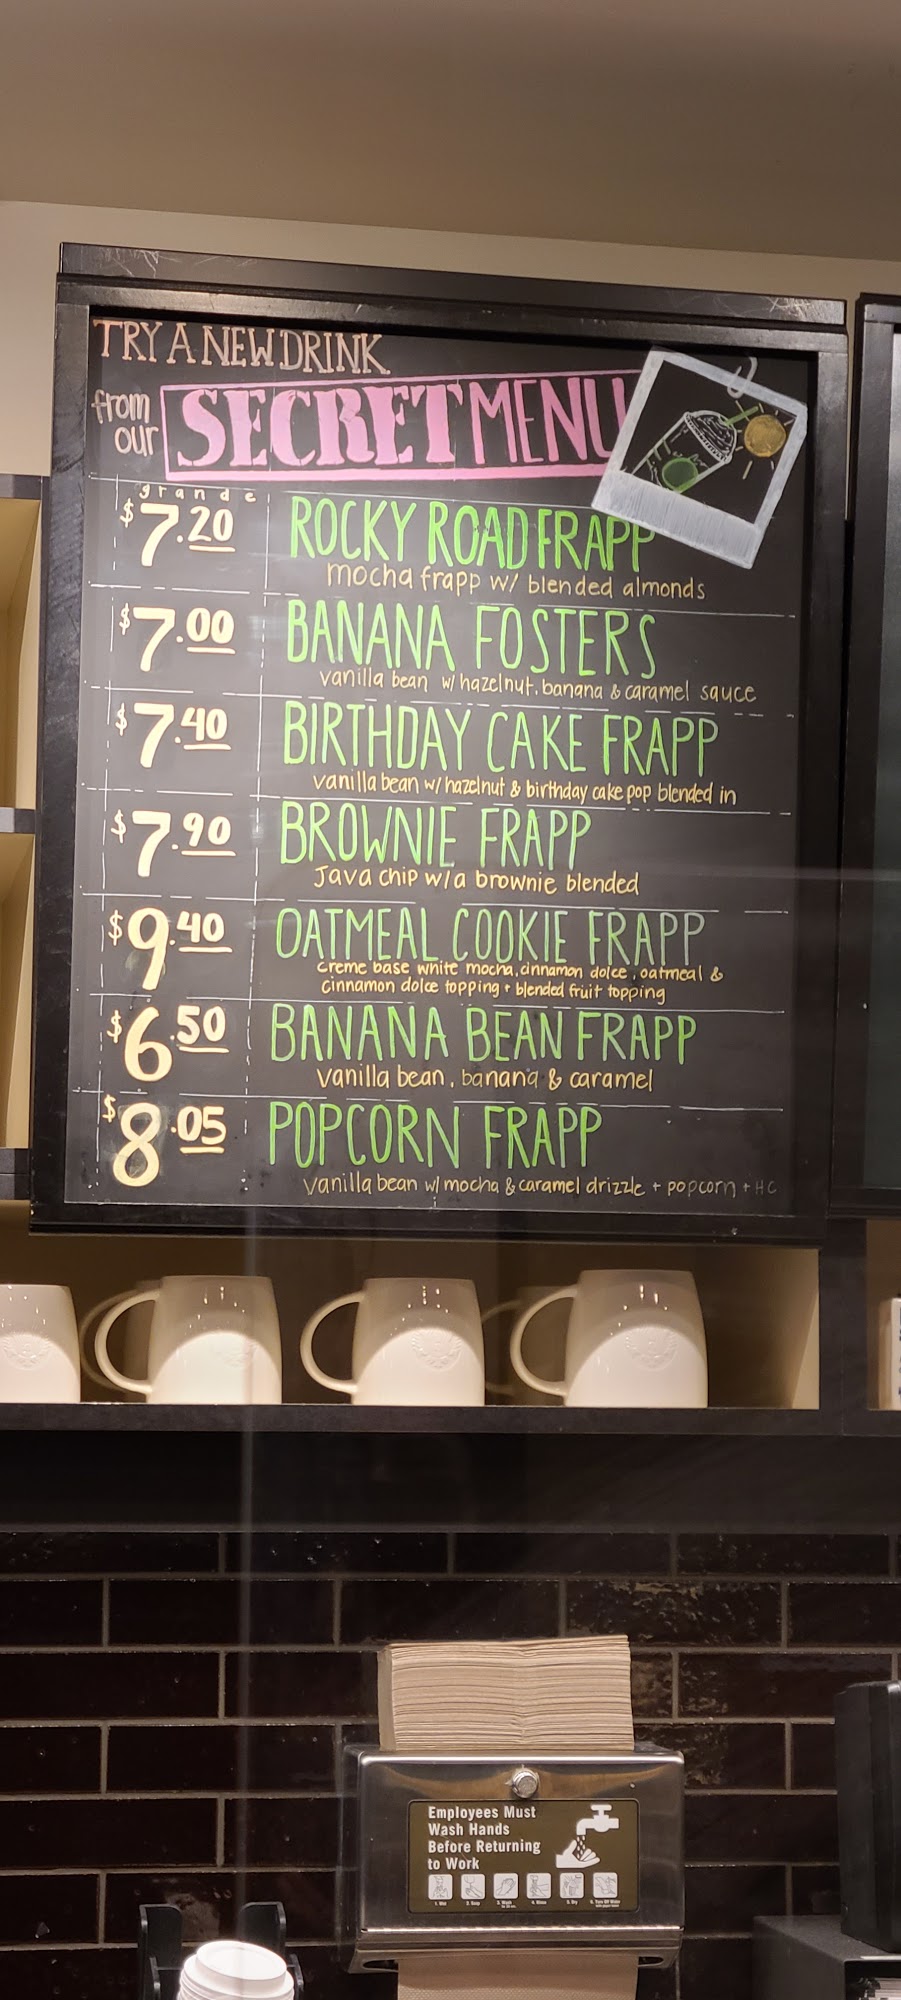 TRY A NEW DRINK
from our SECRET MENU
grande
$7.20 ROCKY ROAD FRAPP
mocha frapp w/ blended almonds
$7.00 BANANA FOSTERS
vanilla bean w/ hazelnut, banana & caramel sauce
$7.40 BIRTHDAY CAKE FRAPP
vanilla bean w/ hazelnut & birthday cake pop blended in
$7.90 BROWNIE FRAPP
Java chip w/ a brownie blended
$9.40 OATMEAL COOKIE FRAPP
creme base white mocha, cinnamon dolce, oatmeal &
cinnamon dolce topping + blended fruit topping
$6.50 BANANA BEAN FRAPP
vanilla bean, banana & caramel
$8.05 POPCORN FRAPP
vanilla bean w/ mocha & caramel drizzle + popcorn + HC
Employees Must
Wash Hands
Before Returning
to Work